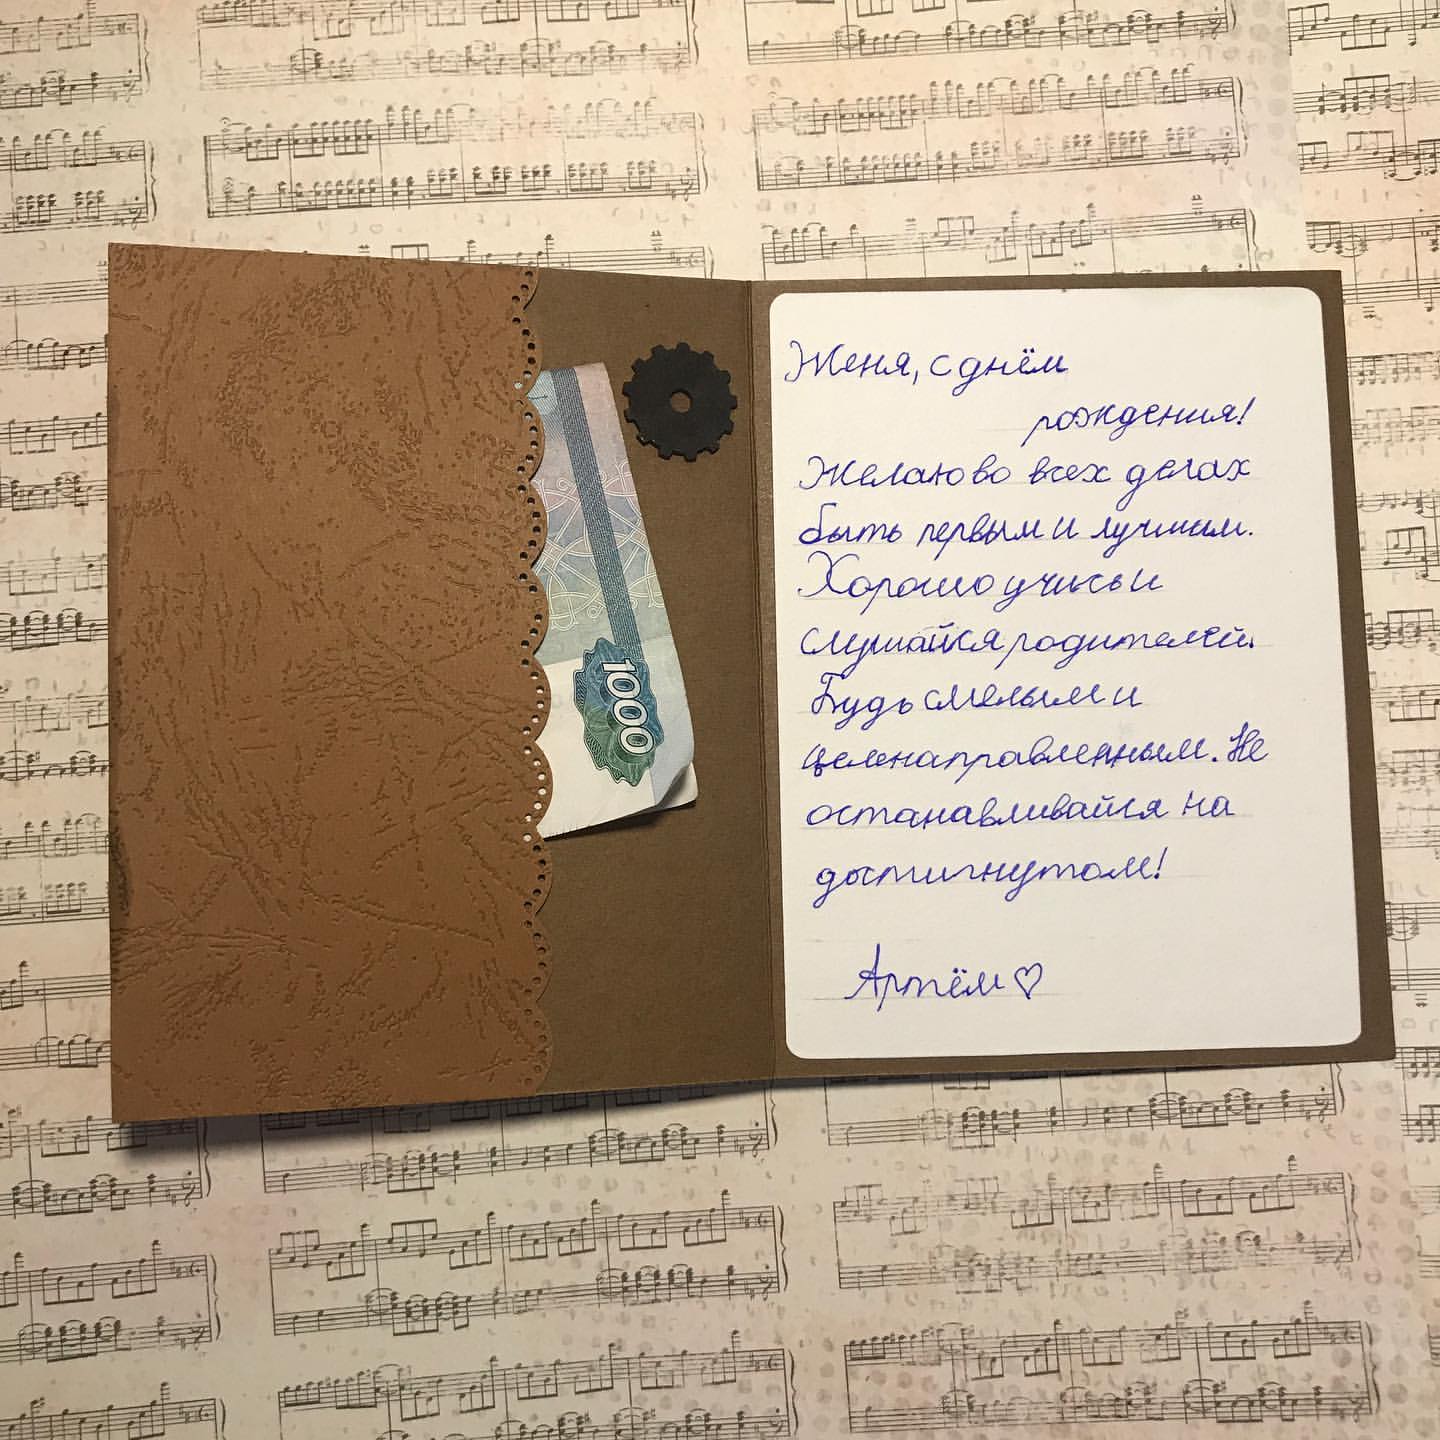 1000
Женя, с днём
рождения!
Желаю во всех делах
быть первым и лучшим.
Хорошо учись и
слушайся родителей.
Будь смелым и
целенаправленным. Не
останавливайся на
достигнутом!
Артём ♡